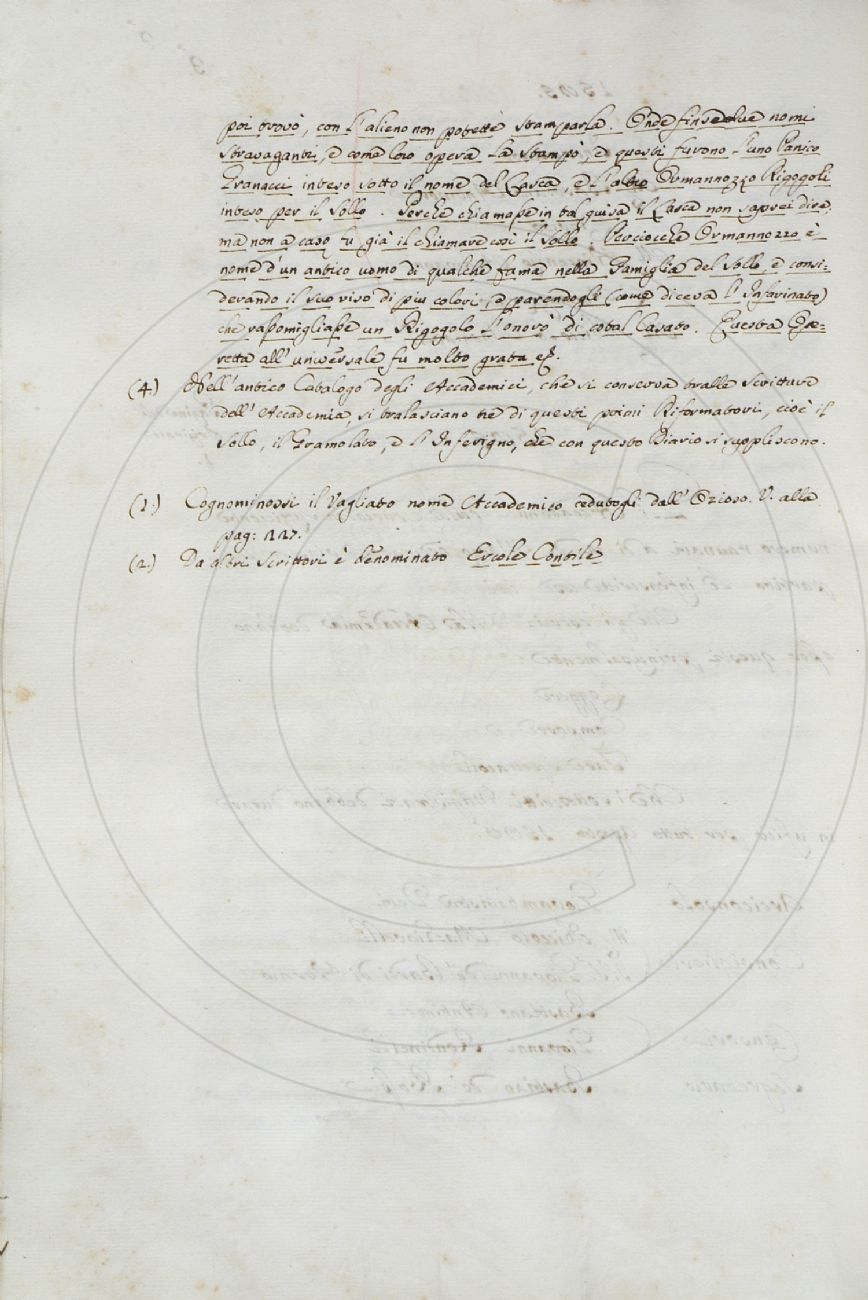 poi trovò, con l'alieno non potette stamparla. Onde finse due nomi
stravaganti, e come loro opera la stampò, e questi furono l'uno Panico
Granacci inteso sotto il nome del Lasca, e l'altro Ormannozzo Rigogoli
inteso per il Sollo. Perchè chiamasse in tal guisa il Lasca non saprei dire,
ma non a caso fu già il chiamare così il Sollo. Perciocche Ormannozzo è
nome d'un antico uomo di qualche fama nella Famiglia del Sollo, e consi-
derando il suo viso di più colori, e parendogli (come diceva l'Infarinato)
che rassomigliasse un Rigogolo l'onorò di cotal Casato. Questa Ope-
retta all'universale fu molto grata &c.
(4.) Nell'antico Catalogo degli Accademici, che si conserva tralle Scritture
dell'Accademia, si tralasciano tre di questi primi Riformatori, cioè il
Sollo, il Gramolato, e l'Inferigno, che con questo Diario si suppliscono.
(1.) Cognominossi il Vagliato nome Accademico cedutogli dall'Ozioso. V. alla
pag: 127.
(2.) Da altri Scrittori è denominato Ercole Contile